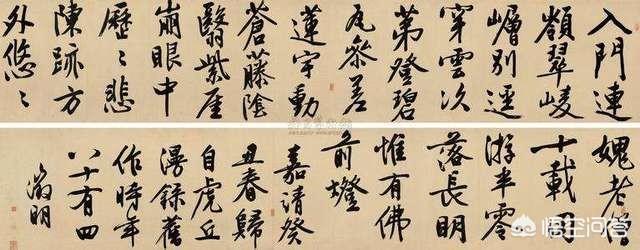 入門連
嶺翠崚
嶒別逕
穿雲次
第登碧
瓦參差
蓮宇動
蒼藤陰
翳紫厓
崩眼中
歷〻悲
陳跡方
外悠〻
媿老僧
十載同
游半零
落長明
惟有佛
前燈
嘉靖癸
丑春歸
自虎丘
漫錄舊
作時年
八十有四
徵明
悟空问答